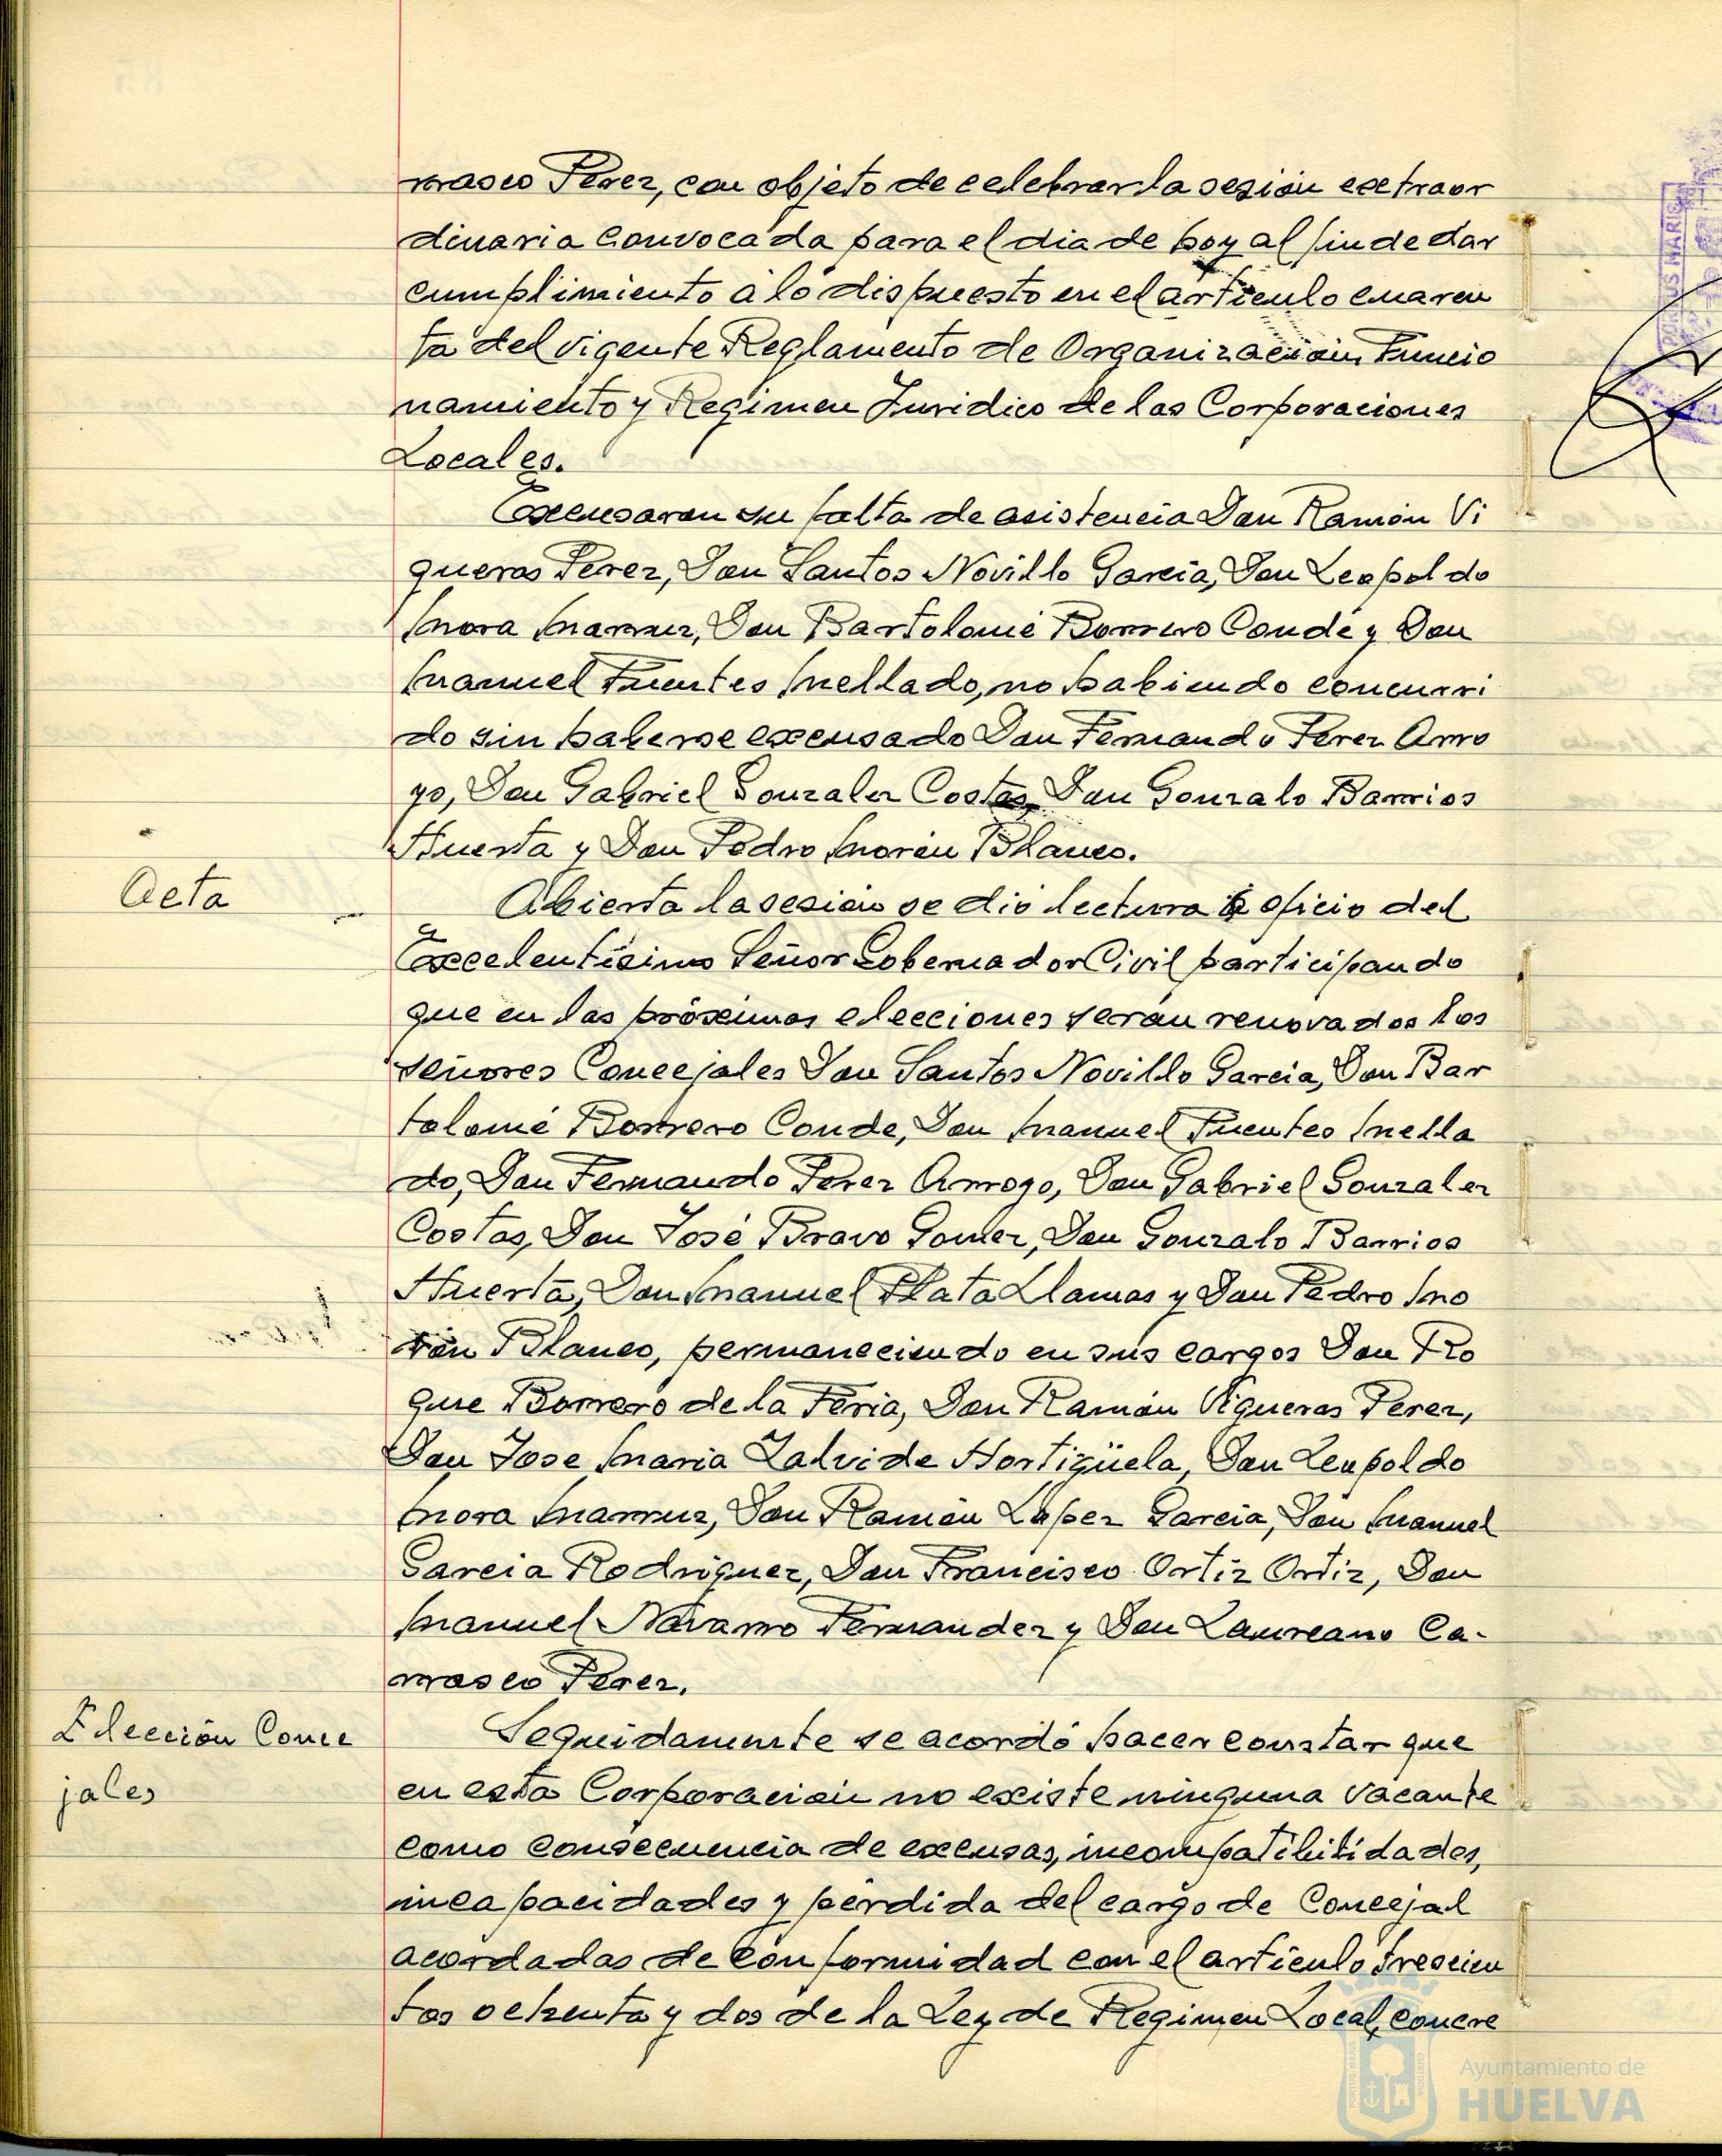 rrasco Perez, con objeto de celebrar la sesión extraor
dinaria convocada para el dia de hoy al fin de dar
cumplimiento a lo dispuesto en el artículo cuaren
ta del vigente Reglamento de Organización Funcio
namiento y Regimen Juridico de las Corporaciones
Locales.
Excusaron su falta de asistencia Don Ramón Vi
gueras Perez, Don Santos Novillo García, Don Leopoldo
Mora Marruz, Don Bartolomé Borrero Conde y Don
Manuel Fuentes Mellado, no habiendo concurri
do sin haberse excusado Don Fernando Perez Arro
yo, Don Gabriel Gonzalez Costas, Don Gonzalo Barrios
Huerta y Don Pedro Morón Blanco.
Acta
Abierta la sesión se dió lectura a oficio del
Excelentísimo Señor Gobernador Civil participando
que en las próximas elecciones serán renovados los
señores Concejales Don Santos Novillo Garcia, Don Bar
tolomé Borrero Conde, Don Manuel Fuentes Mella
do, Don Fernando Perez Arroyo, Don Gabriel Gonzalez
Costas, Don José Bravo Gomez, Don Gonzalo Barrios
Huerta, Don Manuel Plata Llamas y Don Pedro Mo
rón Blanco, permaneciendo en sus cargos Don Ro
que Borrero de la Feria, Don Ramón Vigueras Perez,
Don Jose Maria Zalvide Hortigüela, Don Leopoldo
Mora Marruz, Don Ramón López Garcia, Don Manuel
Garcia Rodriguez, Don Francisco Ortiz Ortiz, Don
Manuel Navarro Fernandez y Don Laureano Ca-
rrasco Perez.
Elección Conce
jales
Seguidamente se acordó hacer constar que
en esta Corporación no existe ninguna vacante
como consecuencia de excusas, incompatibilidades,
incapacidades y pérdida del cargo de Concejal
acordadas de conformidad con el artículo trescien
tos ochenta y dos de la Ley de Regimen Local, concre
Ayuntamiento de
HUELVA